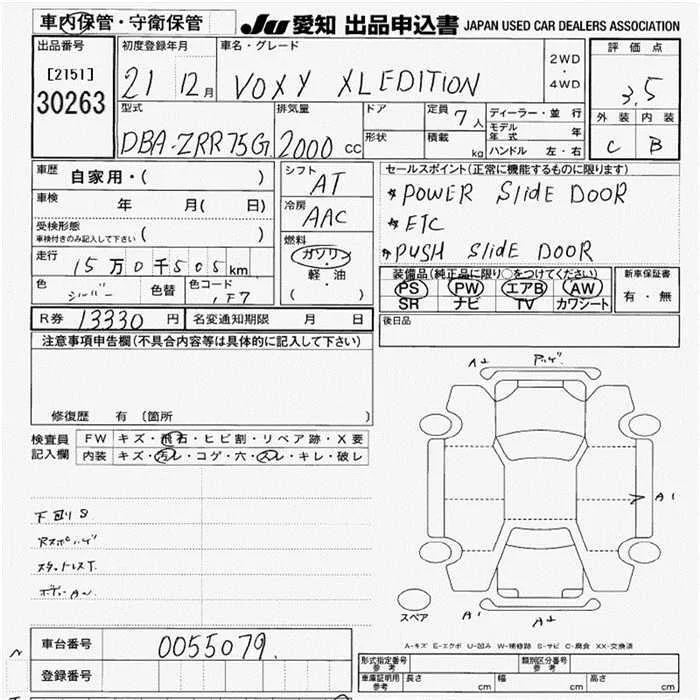 車内保管・守衛保管 JU 愛知 出品申込書 JAPAN USED CAR DEALERS ASSOCIATION
出品番号 初度登録年月 車名・グレード 2WD ・ 4WD 評価点
[2151] 21 12月 VOXY XL EDITION 3.5
30263 型式 排気量 ドア 定員 7人 ディーラー・並行 外装 内装
DBA-ZRR75G 2000cc 形状 積載 kg モデル年式 年 C B
ハンドル 左・右
車歴 自家用・( ) シフト AT セールスポイント(正常に機能するものに限ります)
車検 年 月( 日) 冷房 AAC *POWER SlidE DOOR
受検形態 ( ) *ETC
車検付きのみ記入して下さい 燃料 *PUSH SlidE DOOR
走行 15万0千505km ガソリン
軽・油
( )
装備品(純正品に限り○をつけてください) 新車保証書
色 シルバー 色替 色コード 1F7 PS PW エアB AW 有・無
SR ナビ TV カワシート
R券 13330円 名変通知期限 月 日 後日品
注意事項申告欄(不具合内容等は具体的に記入して下さい)
修復歴 有 (箇所 )
検査員 FW キズ・飛石・ヒビ割・リペア跡・X要
記入欄 内装 キズ・汚レ・コゲ・穴・スレ・キレ・破レ
下回りS
スタットレスT.
A1
スペア A1
A-キズ E-エクボ U-凹み W-補修跡 S-サビ C-腐食 XX-交換済
車台番号 0055079
登録番号
形式指定番号 参考 類別区分番号 参考
車庫証明用 参考 長さ cm 幅 cm 高さ cm